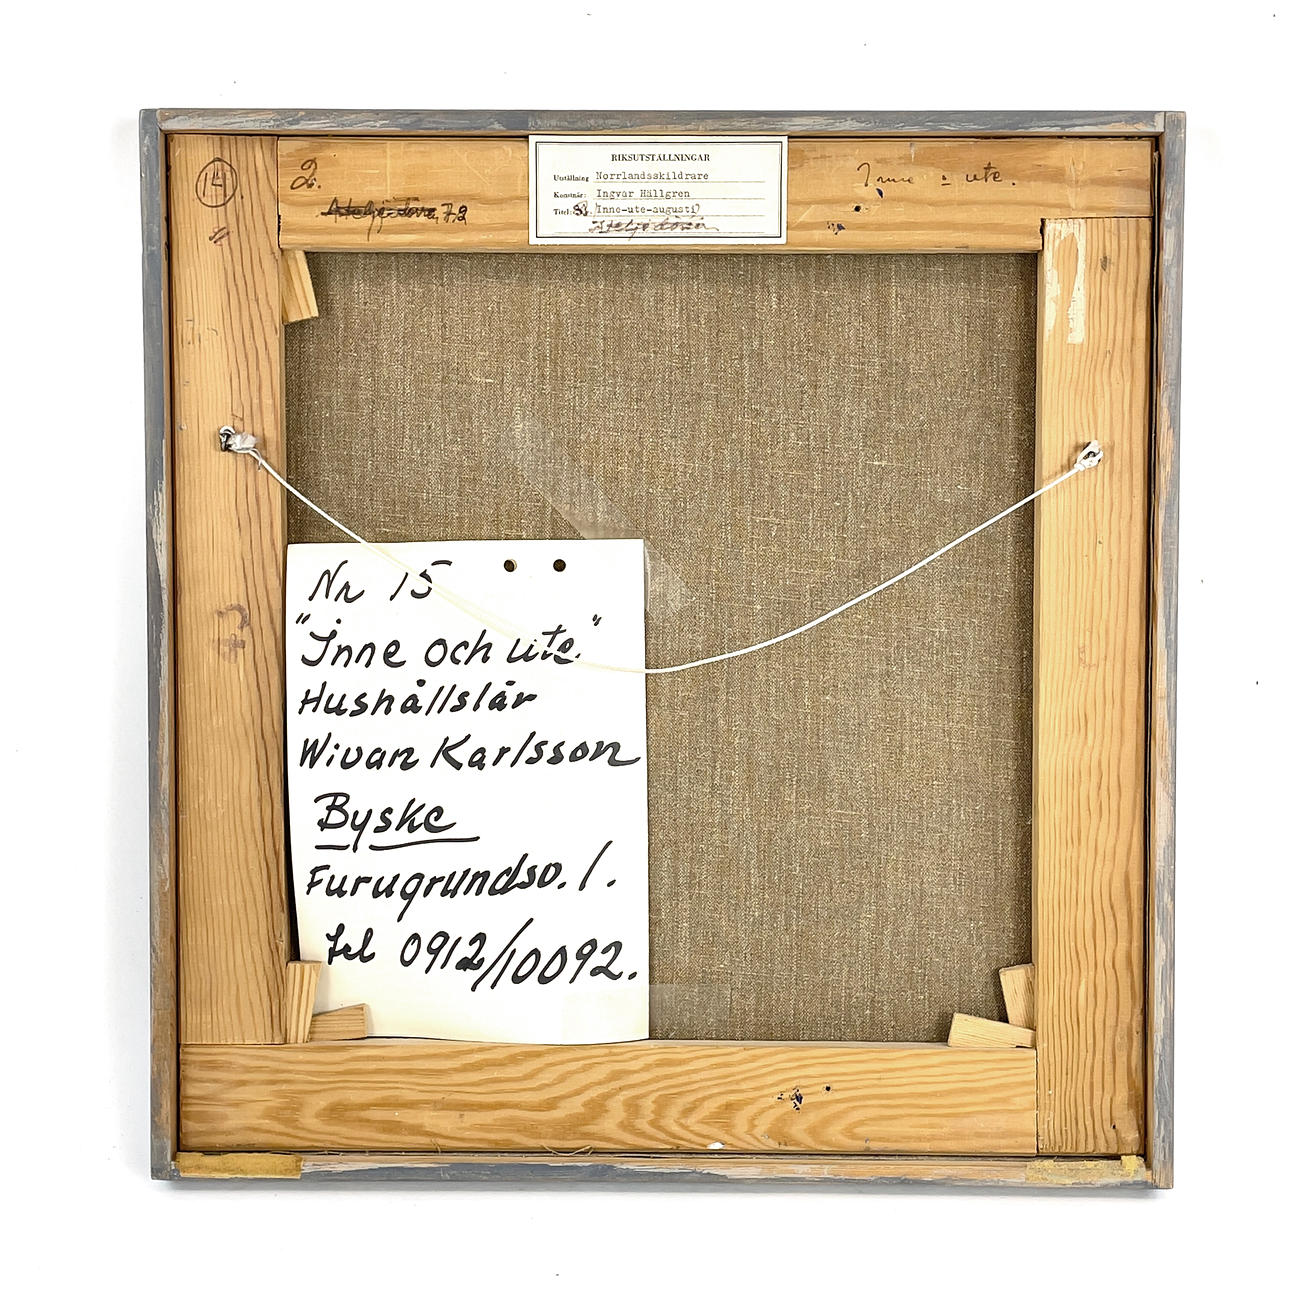 14
2.
72
RIKSUTSTÄLLNINGAR
Utställning Norrlandsskildrare
Konstnär: Ingvar Hällgren
Titel: Inne-ute-augusti
Ateljédörren
Inne o ute.
Nr 15
"Inne och ute."
Hushållslär
Wivan Karlsson
Byske
Furugrundsv. 1.
tel 0912/10092.